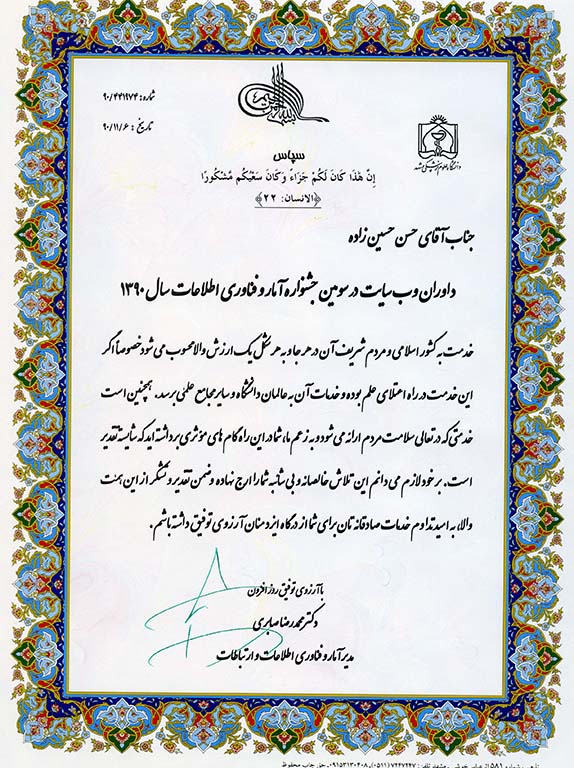 بسم الله الرحمن الرحیم
شماره: ۹۰/۴۴۱۹۷۴
تاریخ: ۹۰/۱۱/۶
دانشگاه علوم پزشکی مشهد
سپاس
إِنَّ هَٰذَا كَانَ لَكُمْ جَزَاءً وَكَانَ سَعْيُكُم مَّشْكُورًا
﴿الانسان: ۲۲﴾
جناب آقای حسن حسین زاده
داوران وب سایت در سومین جشنواره آمار و فناوری اطلاعات سال ۱۳۹۰
خدمت به کشور اسلامی و مردم شریف آن در هر جا و به هر شکل یک ارزش والا محسوب می شود خصوصاً اگر
این خدمت در راه اعتلای علم بوده و خدمات آن به عالمان دانشگاه و سایر مجامع علمی برسد. همچنین است
خدمتی که در تعالی سلامت مردم ارائه می شود و به زعم ما، شما در این راه گام های مؤثری برداشته اید که شایسته تقدیر
است. بر خود لازم می دانم این تلاش خالصانه و بی شائبه شما را ارج نهاده و ضمن تقدیر و تشکر از این همت
والا، به امید تداوم خدمات صادقانه تان برای شما از درگاه ایزد منان آرزوی توفیق داشته باشم.
با آرزوی توفیق روز افزون
دکتر محمدرضا صابری
مدیر آمار و فناوری اطلاعات و ارتباطات
مشهد تلفن: ۷۲۴۷۲۴۷ (۰۵۱۱)، ۰۹۱۵۳۱۳۰۴۰۸ حق چاپ محفوظ